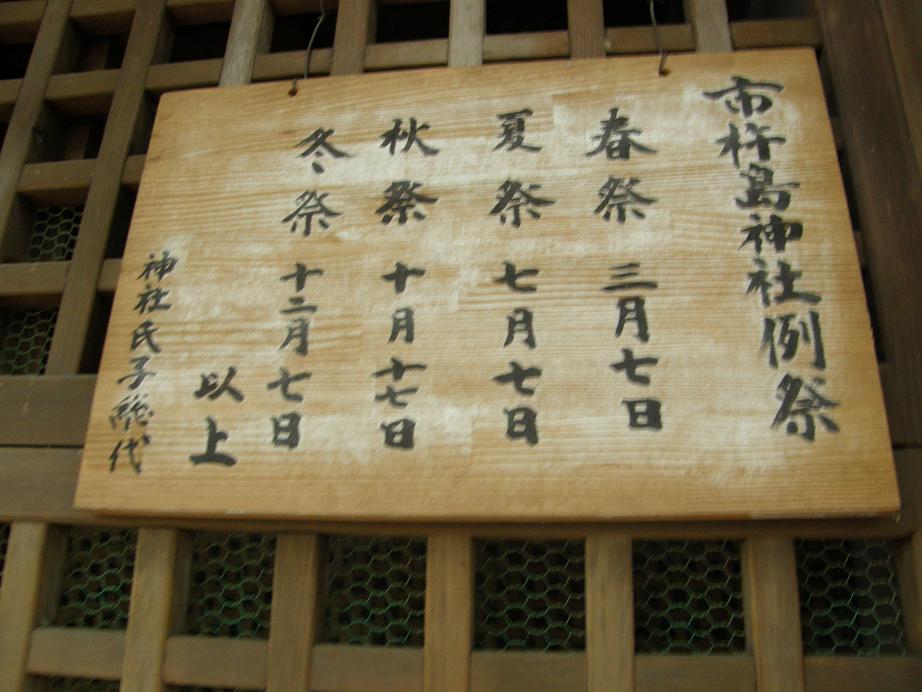 市杵島神社例祭
春祭 三月七日
夏祭 七月七日
秋祭 十月十七日
冬祭 十二月七日
以上
神社氏子総代